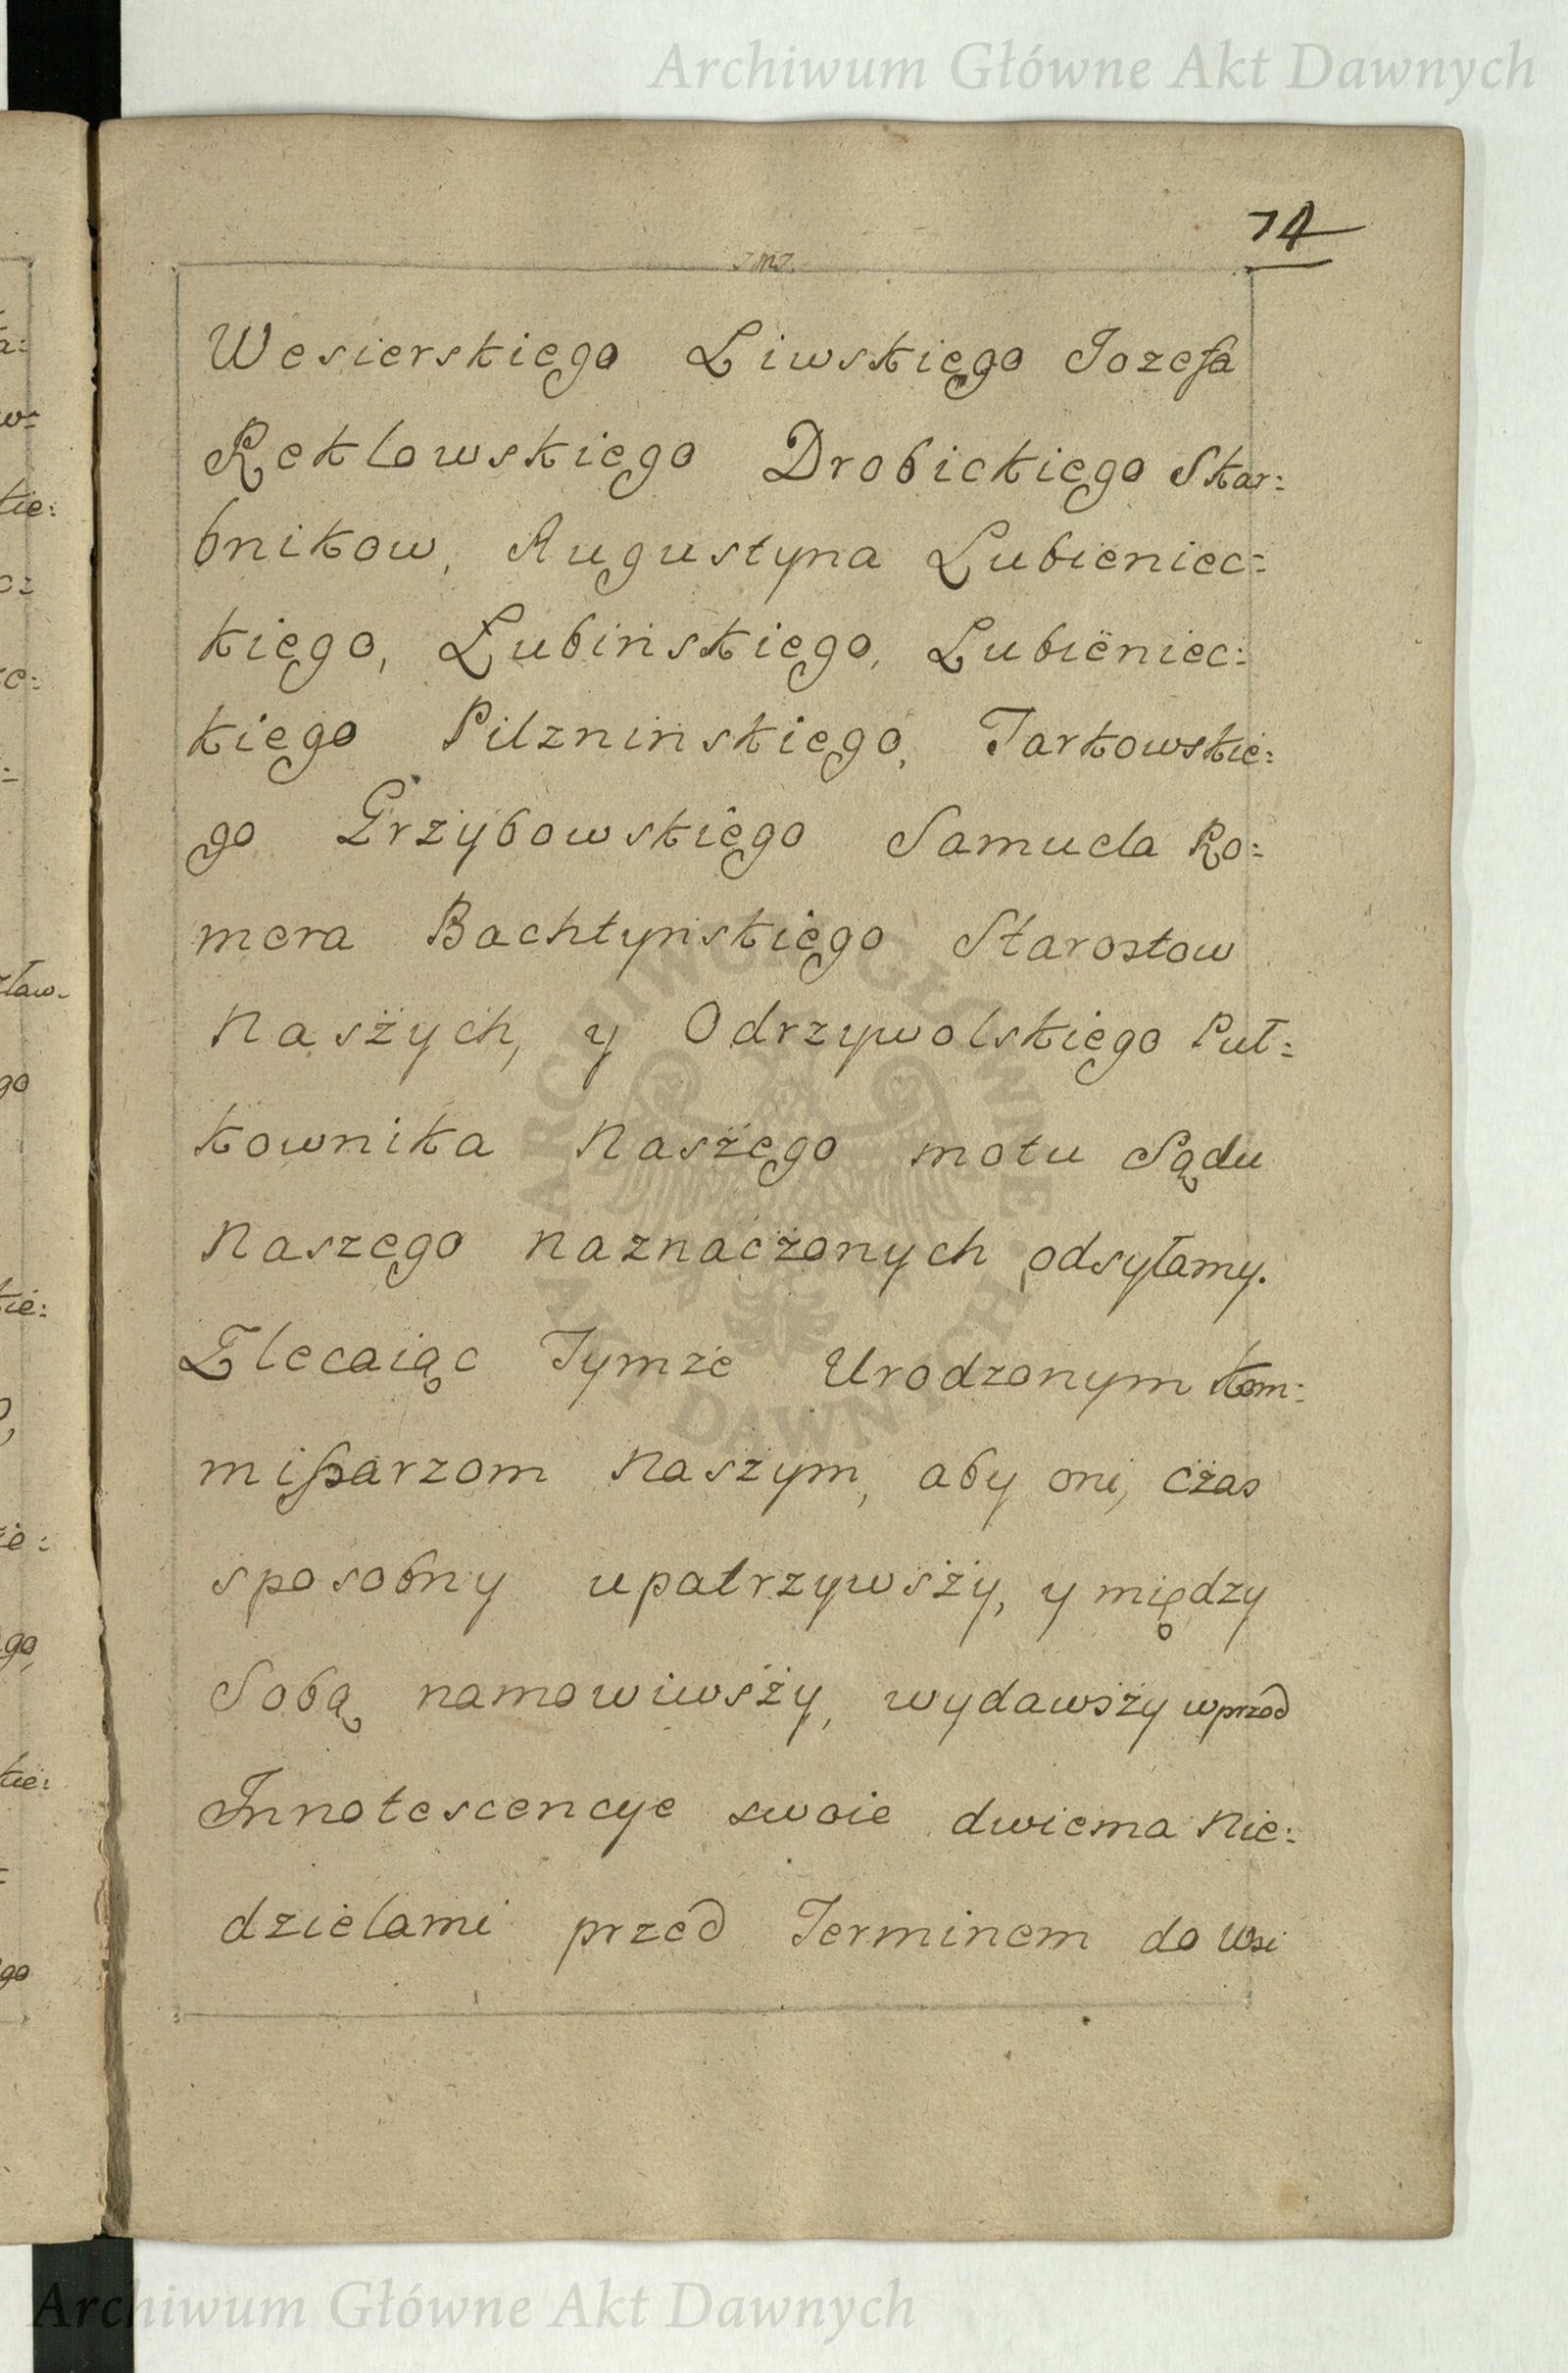 Archiwum Główne Akt Dawnych
14
Wesierskiego Liwskiego Jozefa
Reklowskiego Drobickiego Skar:
bnikow, Augustyna Lubieniec:
kiego, Łubińskiego, Lubieniec:
kiego Pilznińskiego, Tarkowskie:
go Grzybowskiego Samuela Ro:
mera Bachtyńskiego Starostow
Naszych, y Odrzywolskiego Puł:
kownika Naszego motu Sądu
Naszego naznaczonych odsyłamy.
Zlecaiąc Tymże Urodzonym Kom:
mißarzom Naszym, aby oni, czas
sposobny upatrzywszy, y między
Sobą namowiwszy, wydawszy wprzod
Innotescencye swoie dwiema Nie:
dzielami przed Terminem do Wsi
Archiwum Główne Akt Dawnych